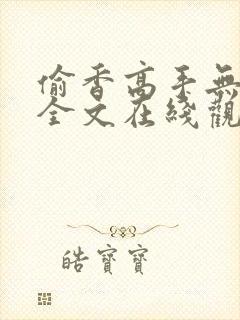 偷香高手無
全文在綫觀
皓寶寶